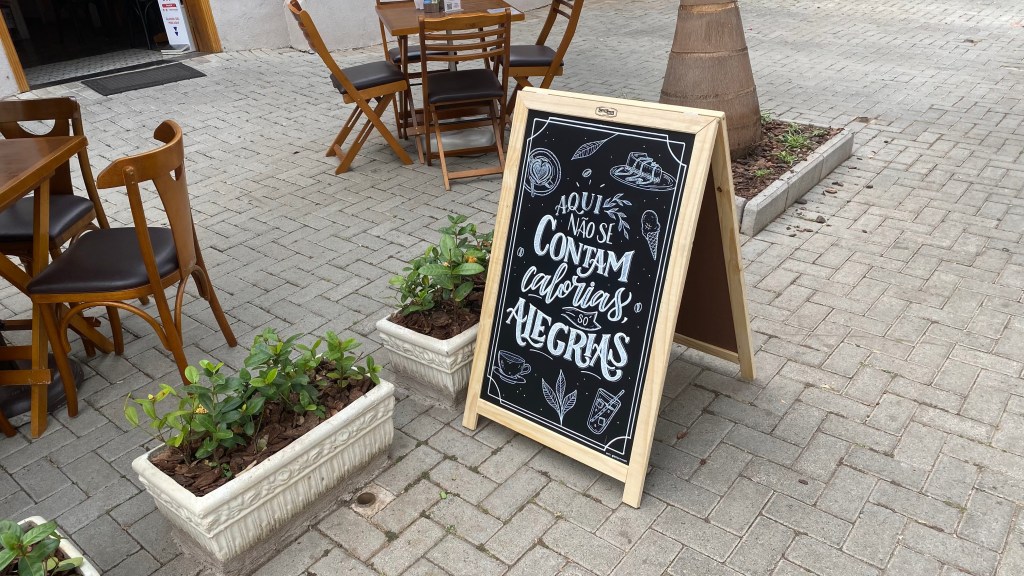 AQUI
NÃO SE
CONTAM
calorias,
SÓ
ALEGRIAS